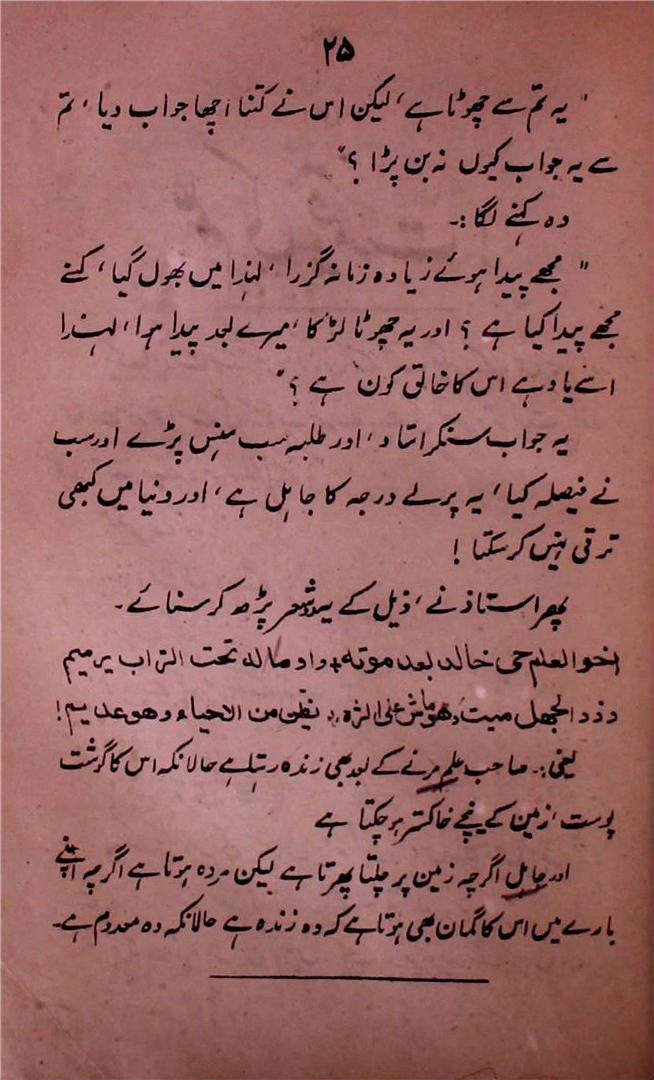 ۲۵
" یہ تم سے چھوٹا ہے ، لیکن اس نے کتنا اچھا جواب دیا ، تم
سے یہ جواب کیوں نہ بن پڑا ؟"
وہ کہنے لگا :۔
" مجھے پیدا ہوئے زیادہ زمانہ گزرا ، لہٰذا میں بھول گیا ، کسنے
مجھے پیدا کیا ہے ؟ اور یہ چھوٹا لڑکا ، میرے بعد پیدا ہوا ، لہٰذا
اسے یاد ہے اس کا خالق کون ہے ؟"
یہ جواب سنکر استاد ، اور طلبہ سب ہنس پڑے اور سب
نے فیصلہ کیا ، یہ پرلے درجہ کا جاہل ہے ، اور دنیا میں کبھی
ترقی نہیں کرسکتا !
پھر استاذ نے ، ذیل کے شعر پڑھ کر سنائے ۔
اخوالعلم حی خالد بعد موته واوصاله تحت التراب یرمیم
وذوالجهل میت وهو ماش علی الثری یظن من الاحیاء وهو عدیم !
یعنی :۔ صاحب علم مرنے کے بعد بھی زندہ رہتا ہے حالانکہ اس کا گوشت
پوست ، زمین کے نیچے خاکستر ہوچکتا ہے
اور جاہل اگرچہ زمین پر چلتا پھرتا ہے لیکن مردہ ہوتا ہے اگرچہ اپنے
بارے میں اس کا گمان بھی ہوتا ہے کہ وہ زندہ ہے حالانکہ وہ معدوم ہے ۔